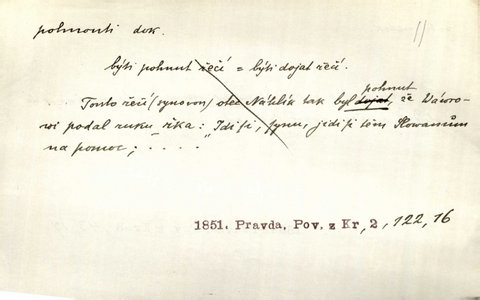 pohnouti dok.
11
býti pohnut řečí = býti dojat řečí.
pohnut
Touto řečí (synovou) otec Náhlík tak byl dojat, že Wávro-
wi podal ruku řka: "Idi si, synu, jidi si těm Slowanům
na pomoc; . . . . .
1851. Pravda, Pov. z Kr, 2, 122, 16